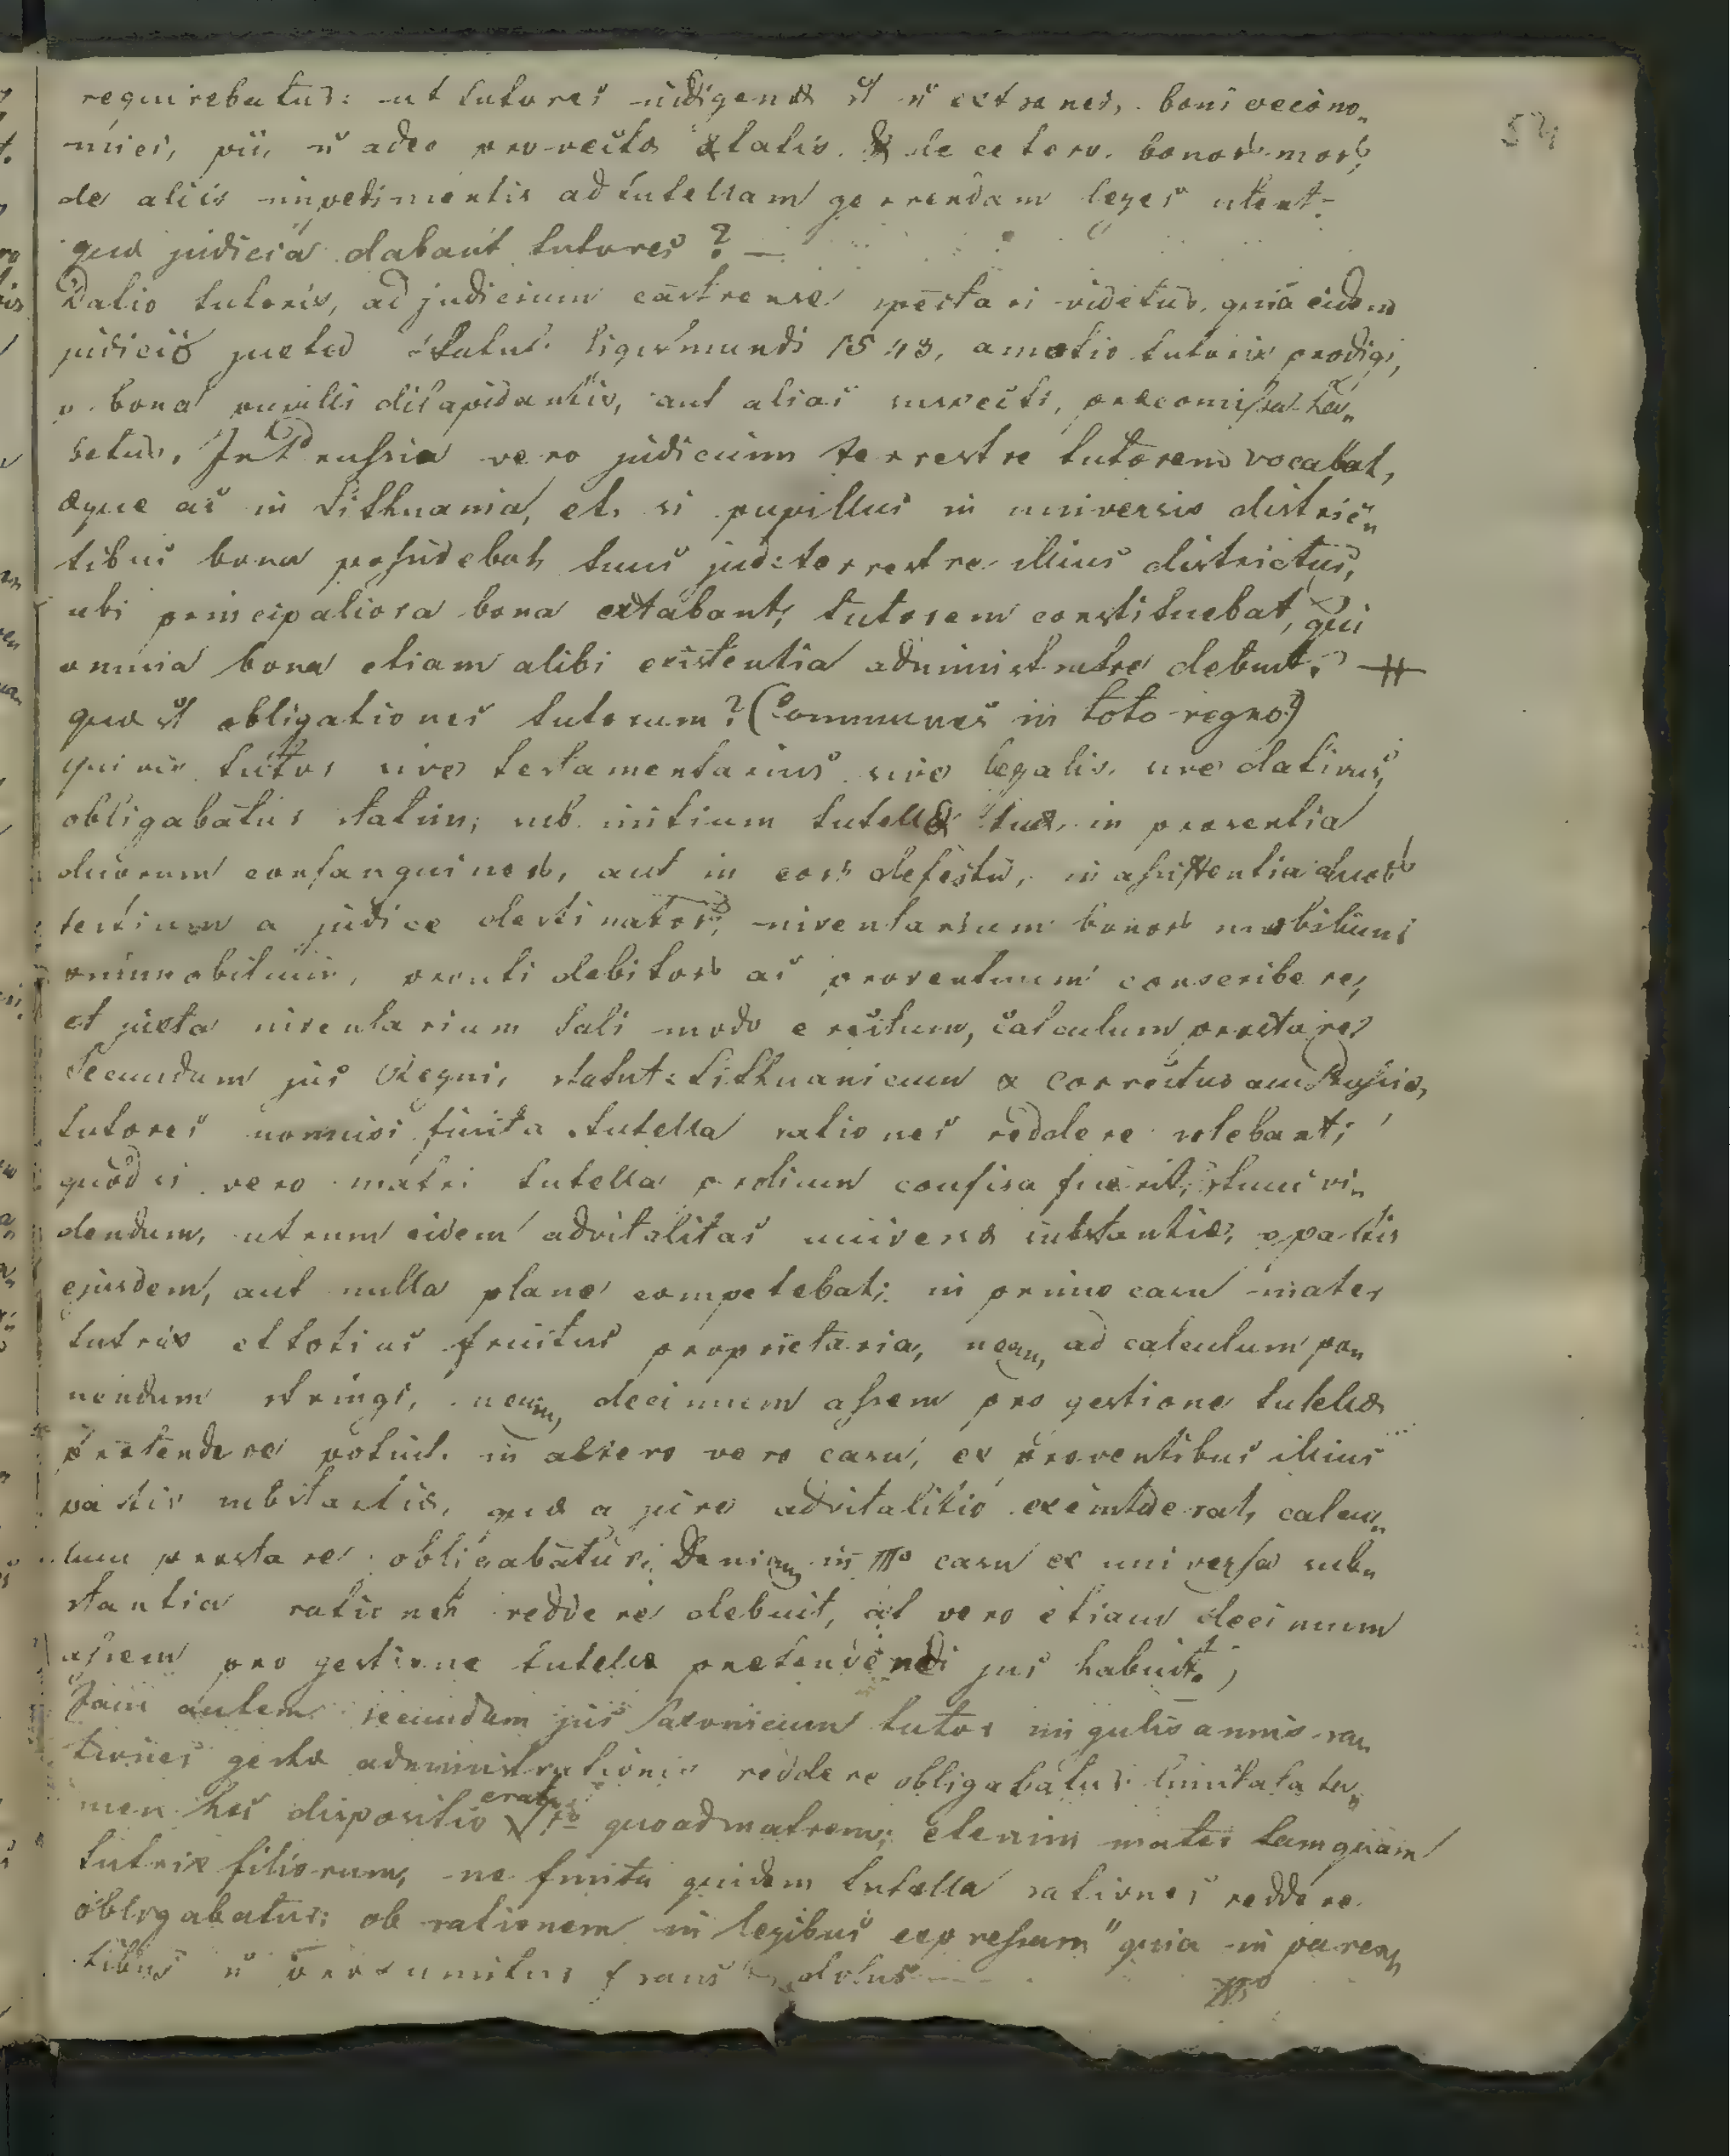 requirebatur: ut tutores indigenæ et ñ extranei, boni oecono„
mici, pii, ñ adeo provectæ ætatis. de cetero. bonor. mor.
de aliis impedimentis ad tutellam gerrendam leges
quæ judicia dabant tutores? —
Datio tutoris, ad judicium castrense spectari videtur, quia eidem
judicio juxta statut: Sigismundi 1543, amotio tutoris prodigi,
bona pupilli dilapidantis, aut alias suspecti, præcomissa ha„
betur, In Prussia vero judicium terrestre tutorem vocabat,
æque ac in Lithuania, et, si pupillus in universis distric„
tibus bona possidebat, tunc jud: terrestre illius districtus,
ubi principaliora bona extabant, tutorem constituebat, qui
omnia bona etiam alibi existentia administrare debuit.
quæ st obligationes tutorum? (Communes in toto regno?)
quivis tutor sive testamentarius sive legalis. sive dativus,
obligabatur statim, sub initium tutellæ suæ, in præsentia
duorum consanguineor, aut in eor defectu, in assistentia duor
testium a judice destinator, inventarium bonor mobilium
immobilium, prouti debitor ac proventuum conscribere,
et juxta inventarium tali modo erectum, calculum præstare,
Secundum jus Regni, statut: Lithuanicum & correctura Prussiæ,
tutores nonnisi finita tutella rationes reddere solebant;
quod si vero matri tutella prolium confisa fuerit, tunc vi„
dendum, utrum eidem advitalitas universæ substantiæ, partis
ejusdem, aut nulla plane competebat; in primo casu mater
tutrix et totius fruitus proprietaria, nequ, ad calculum pon
nendum stringi, nequ, decimum assem pro gestione tutelæ
prætendere potuit. in altero vero casu, ex proventibus illius
partis substantiæ, quæ a jure advitalitio exemta erat, calcu„
lum præstare obligabatur; Deniqu, in IIIo casu ex universa sub„
stantia rationes reddere debuit, at vero etiam decimum
assem pro gestione tutelæ prætendendi jus habuit;
Jam autem secundum jus Saxonicum tutor singulis annis ra„
tiones gestæ administrationis reddere obligabatur. limitata ta„
men hæc dispositio erat 1o quoad matrem; etenim mater tamquam
tutrix filiorum, ne finita quidem tutella rationes reddere
obligabatur; ob rationem in legibus expressam "quia in paren„
tibus ñ præsumitur fraus dolus —